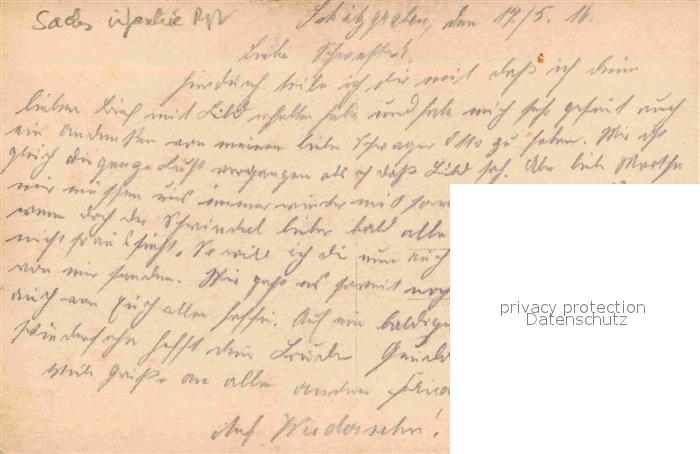 Sachs infantrie Rgt
Schützengraben, den 17/5. 16.
Liebe Schwester!
Hierdurch teile ich dir mit daß ich deine
lieben Brief mit Bild erhalten habe und habe mich sehr gefreut auch
ein Andenken von meinen liebe Schwager Otto zu haben. Mir ist
gleich die ganze Lust vergangen als ich daß Bild sah. Aber liebe Martha
wir müssen uns immer wieder mit
wenn doch der Schwindel lieber bald alle
nicht so aussieht. So will ich dir nun auch
von mir senden. Mir geht es soweit noch
auch von Euch allen hoffe. Auf ein baldiges
Wiedersehn hofft dein Bruder
Viele Grüße an alle andern
Auf Wiedersehn!
privacy protection
Datenschutz